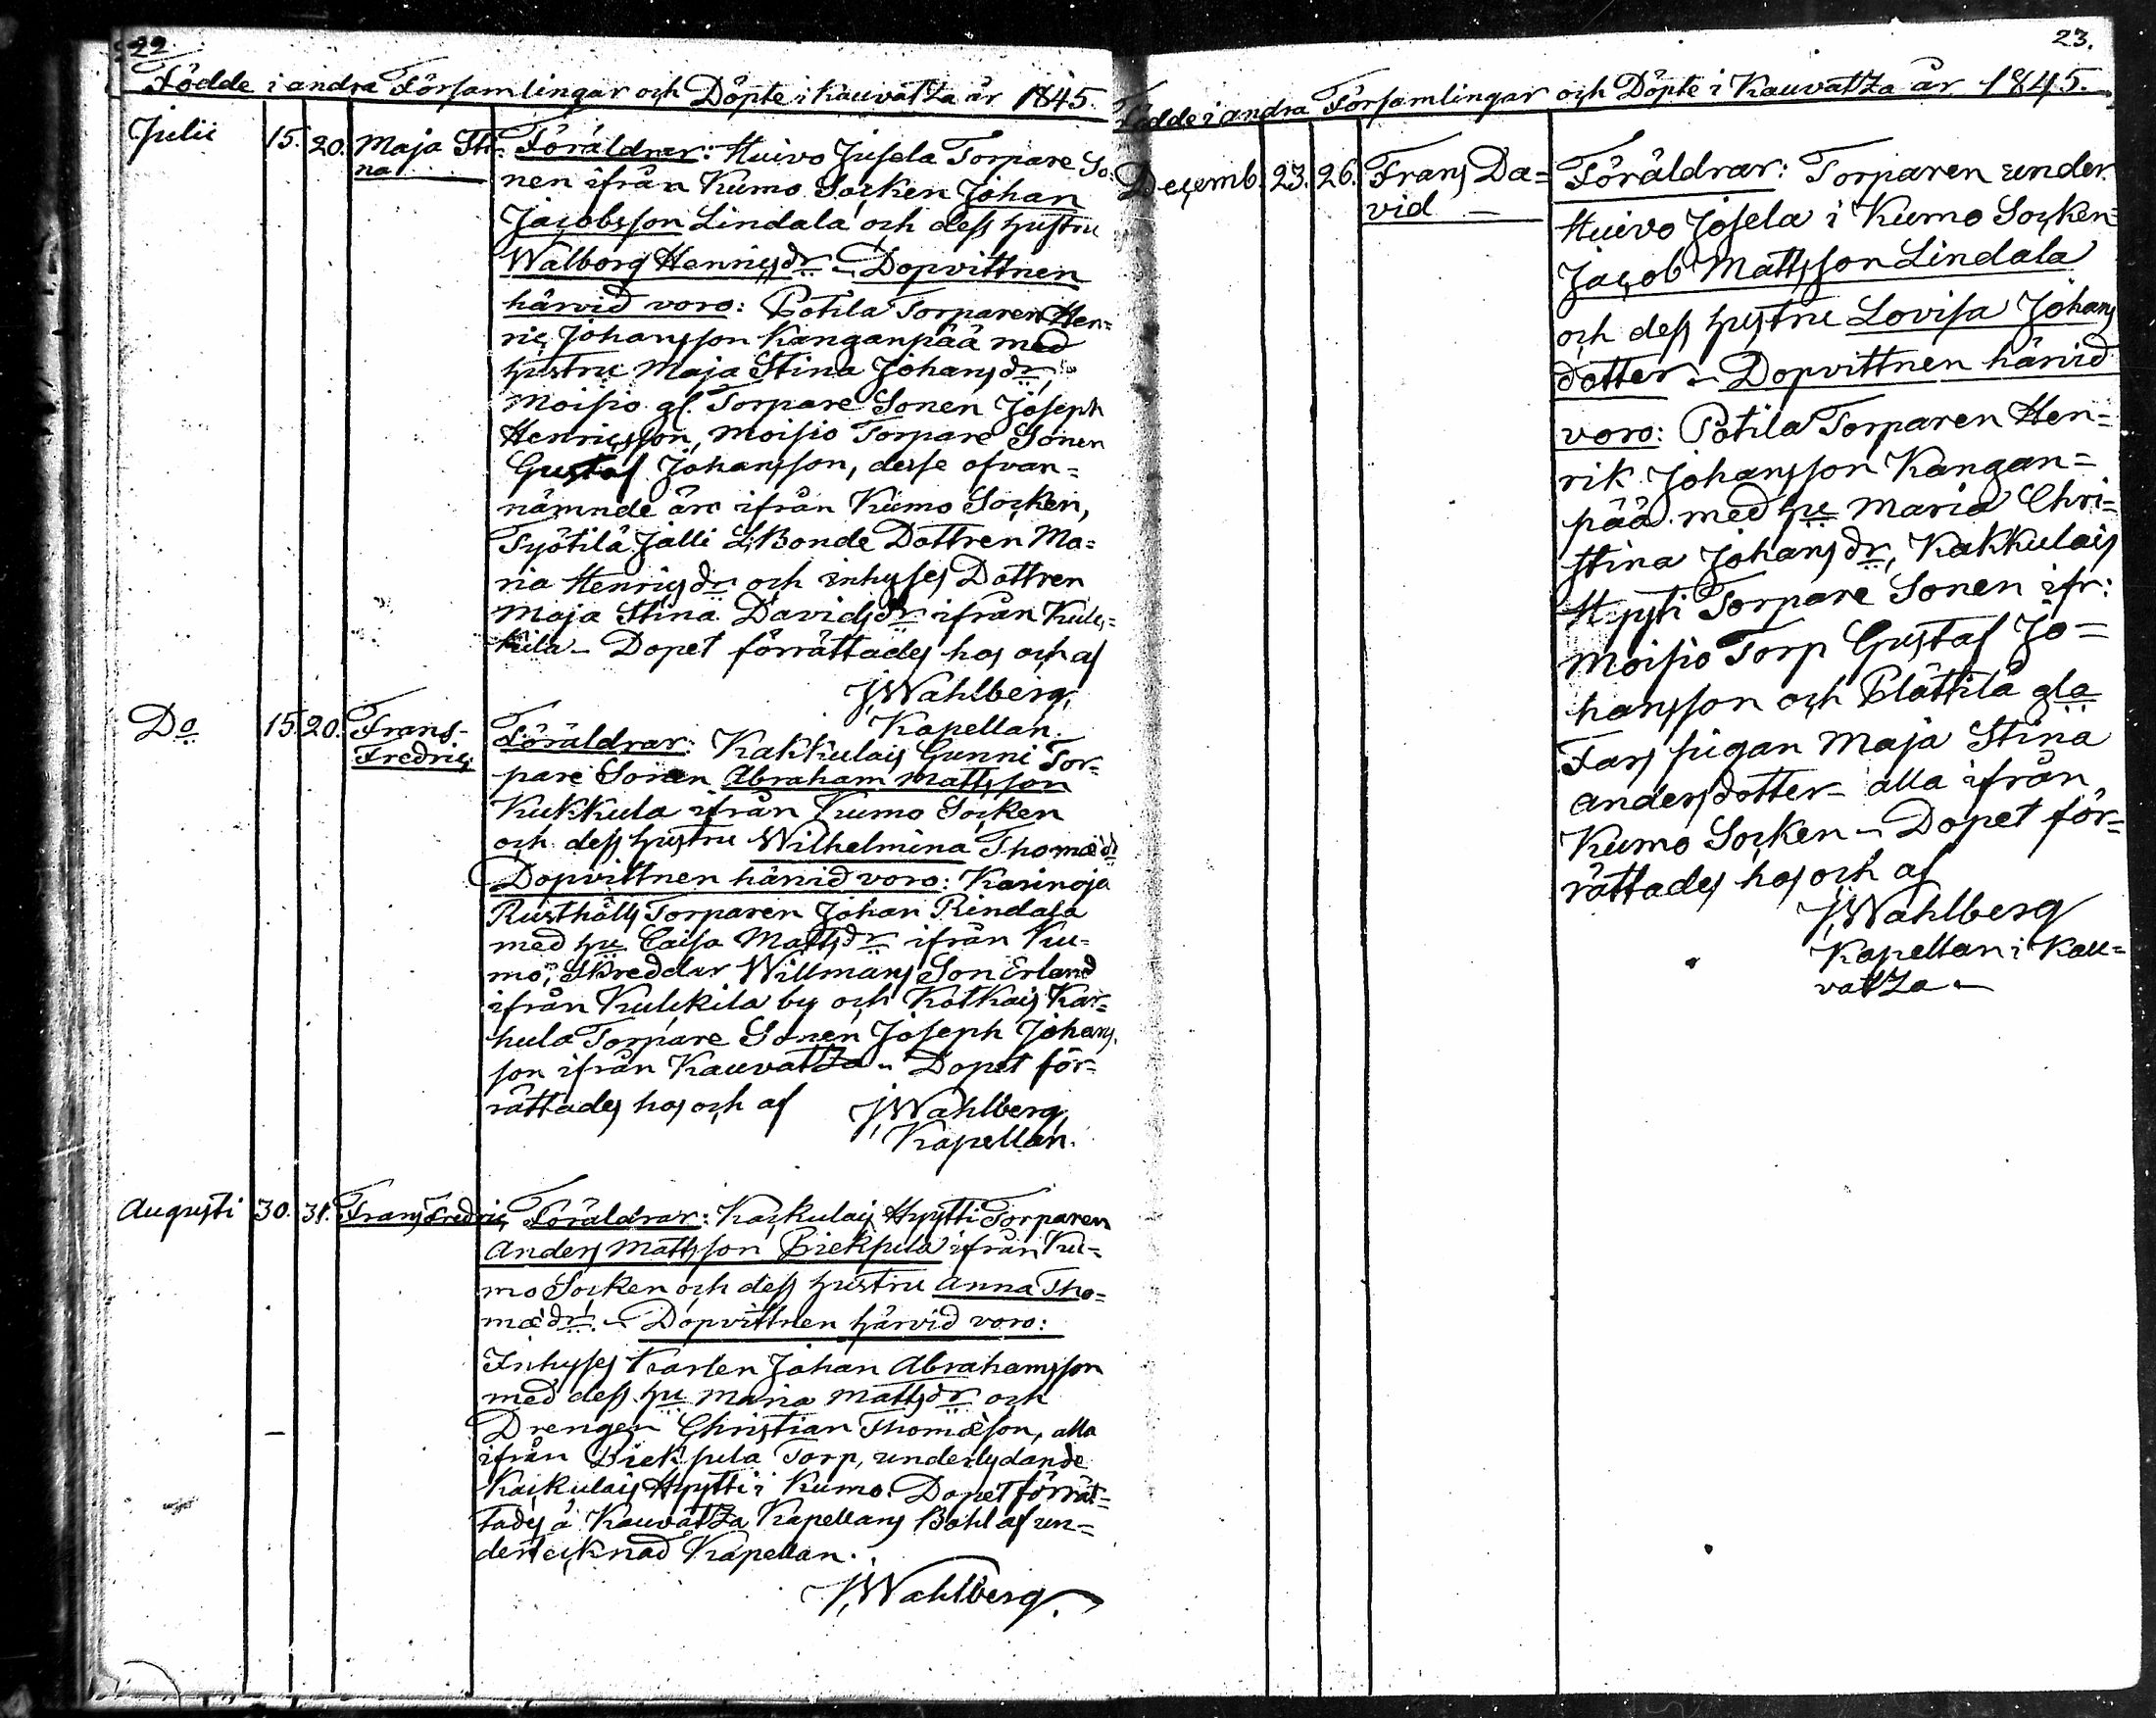 22.
Födde i andra Församlingar och Döpte i Kauvatza år 1845.
Julii 15. 20. Maja Sti-
na
Föräldrar: Huivo Jusela Torpare So-
nen ifrån Kumo Socken Johan
Jacobsson Lindala och dess hustru
Walborg Henricsdr – Dopvittnen
härvid voro: Potila Torparen Hen=
ric Johansson Kanganpää med
hustru Maja Stina Johansdr,
Moisio gl. Torpare Sonen Joseph
Henricsson, Moisio Torpare Sonen
Gustaf Johansson, desse ofvan=
nämnde äro ifrån Kumo Socken,
Työtilä Jalli Bonde Dottren Ma=
ria Henricsdr och inhyses Dottren
Maja Stina Davidsdr ifrån Kulc=
kila – Dopet förrättades hos och af
J. Wahlberg,
Kapellan.
Do 15. 20. Frans
Fredric
Föräldrar: Kakkulais Gunni Tor-
pare Sonen Abraham Mattsson
Kukkula ifrån Kumo Socken
och dess hustru Wilhelmina Thomædr
Dopvittnen härvid voro: Karinoja
Rusthålls Torparen Johan Rindala
med hu Caisa Mattsdr ifrån Ku=
mo, Skreddar Willmans Son Erland
ifrån Kulckila by och Kotkais Kar=
hula Torpare Sonen Joseph Johans
son ifrån Kauvatza – Dopet för=
rättades hos och af J. Wahlberg,
Kapellan.
Augusti 30. 31. Frans Fredric
Föräldrar: Kackulais Hyytti Torparen
Anders Mattsson Piekpula ifrån Ku=
mo Socken och dess hustru Anna Tho=
mædr. – Dopvittnen härvid voro:
Inhyses Karlen Johan Abrahamsson
med dess hu Maria Mattsdr och
Drengen Christian Thomæson, alla
ifrån Piekpula Torp, underlydande
Kackulais Hyytti i Kumo. Dopet förrät=
tades å Kauvatza Kapellans Bohl af un=
dertecknad Kapellan.
J. Wahlberg.
23.
Födde i andra Församlingar och Döpte i Kauvatza år 1845.
Decemb. 23. 26. Frans Da=
vid
Föräldrar: Torparen under
Huivo Josela i Kumo Socken=
Jacob Mattsson Lindala
och dess hustru Lovisa Johans
dotter – Dopvittnen härvid
voro: Potila Torparen Hen=
rik Johansson Kangan=
pää med hu Maria Chri=
stina Johansdr, Kakkulais
Hyyti Torpare Sonen ifr:
Moisio Torp Gustaf Jo=
hansson och Plättilä gla
Fars pigan Maja Stina
Andersdotter – alla ifrån
Kumo Socken – Dopet för=
rättades hos och af
J. Wahlberg
Kapellan i Kau=
vatza –